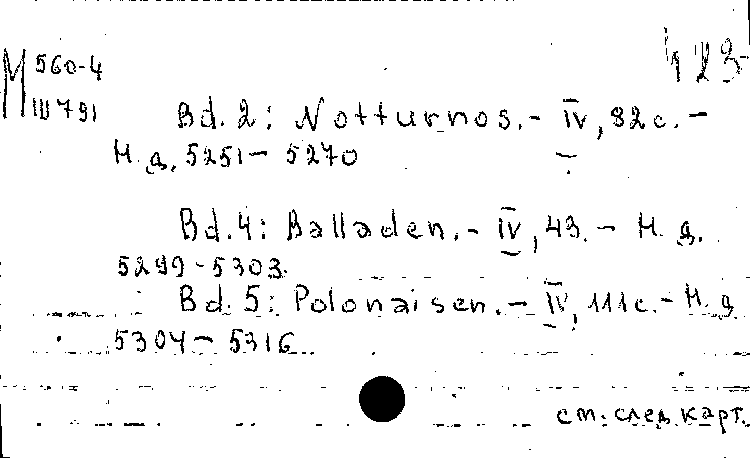 М 560-4
Ш 791
123
Bd. 2: Notturnos.- IV, 82 с. -
Н.д. 5251 - 5270
Bd. 4: Balladen. - IV, 43. - Н.д.
5299-5303.
Bd. 5: Polonaisen. - IV, 111 с. - Н.д
5304 - 5316
см. след карт.